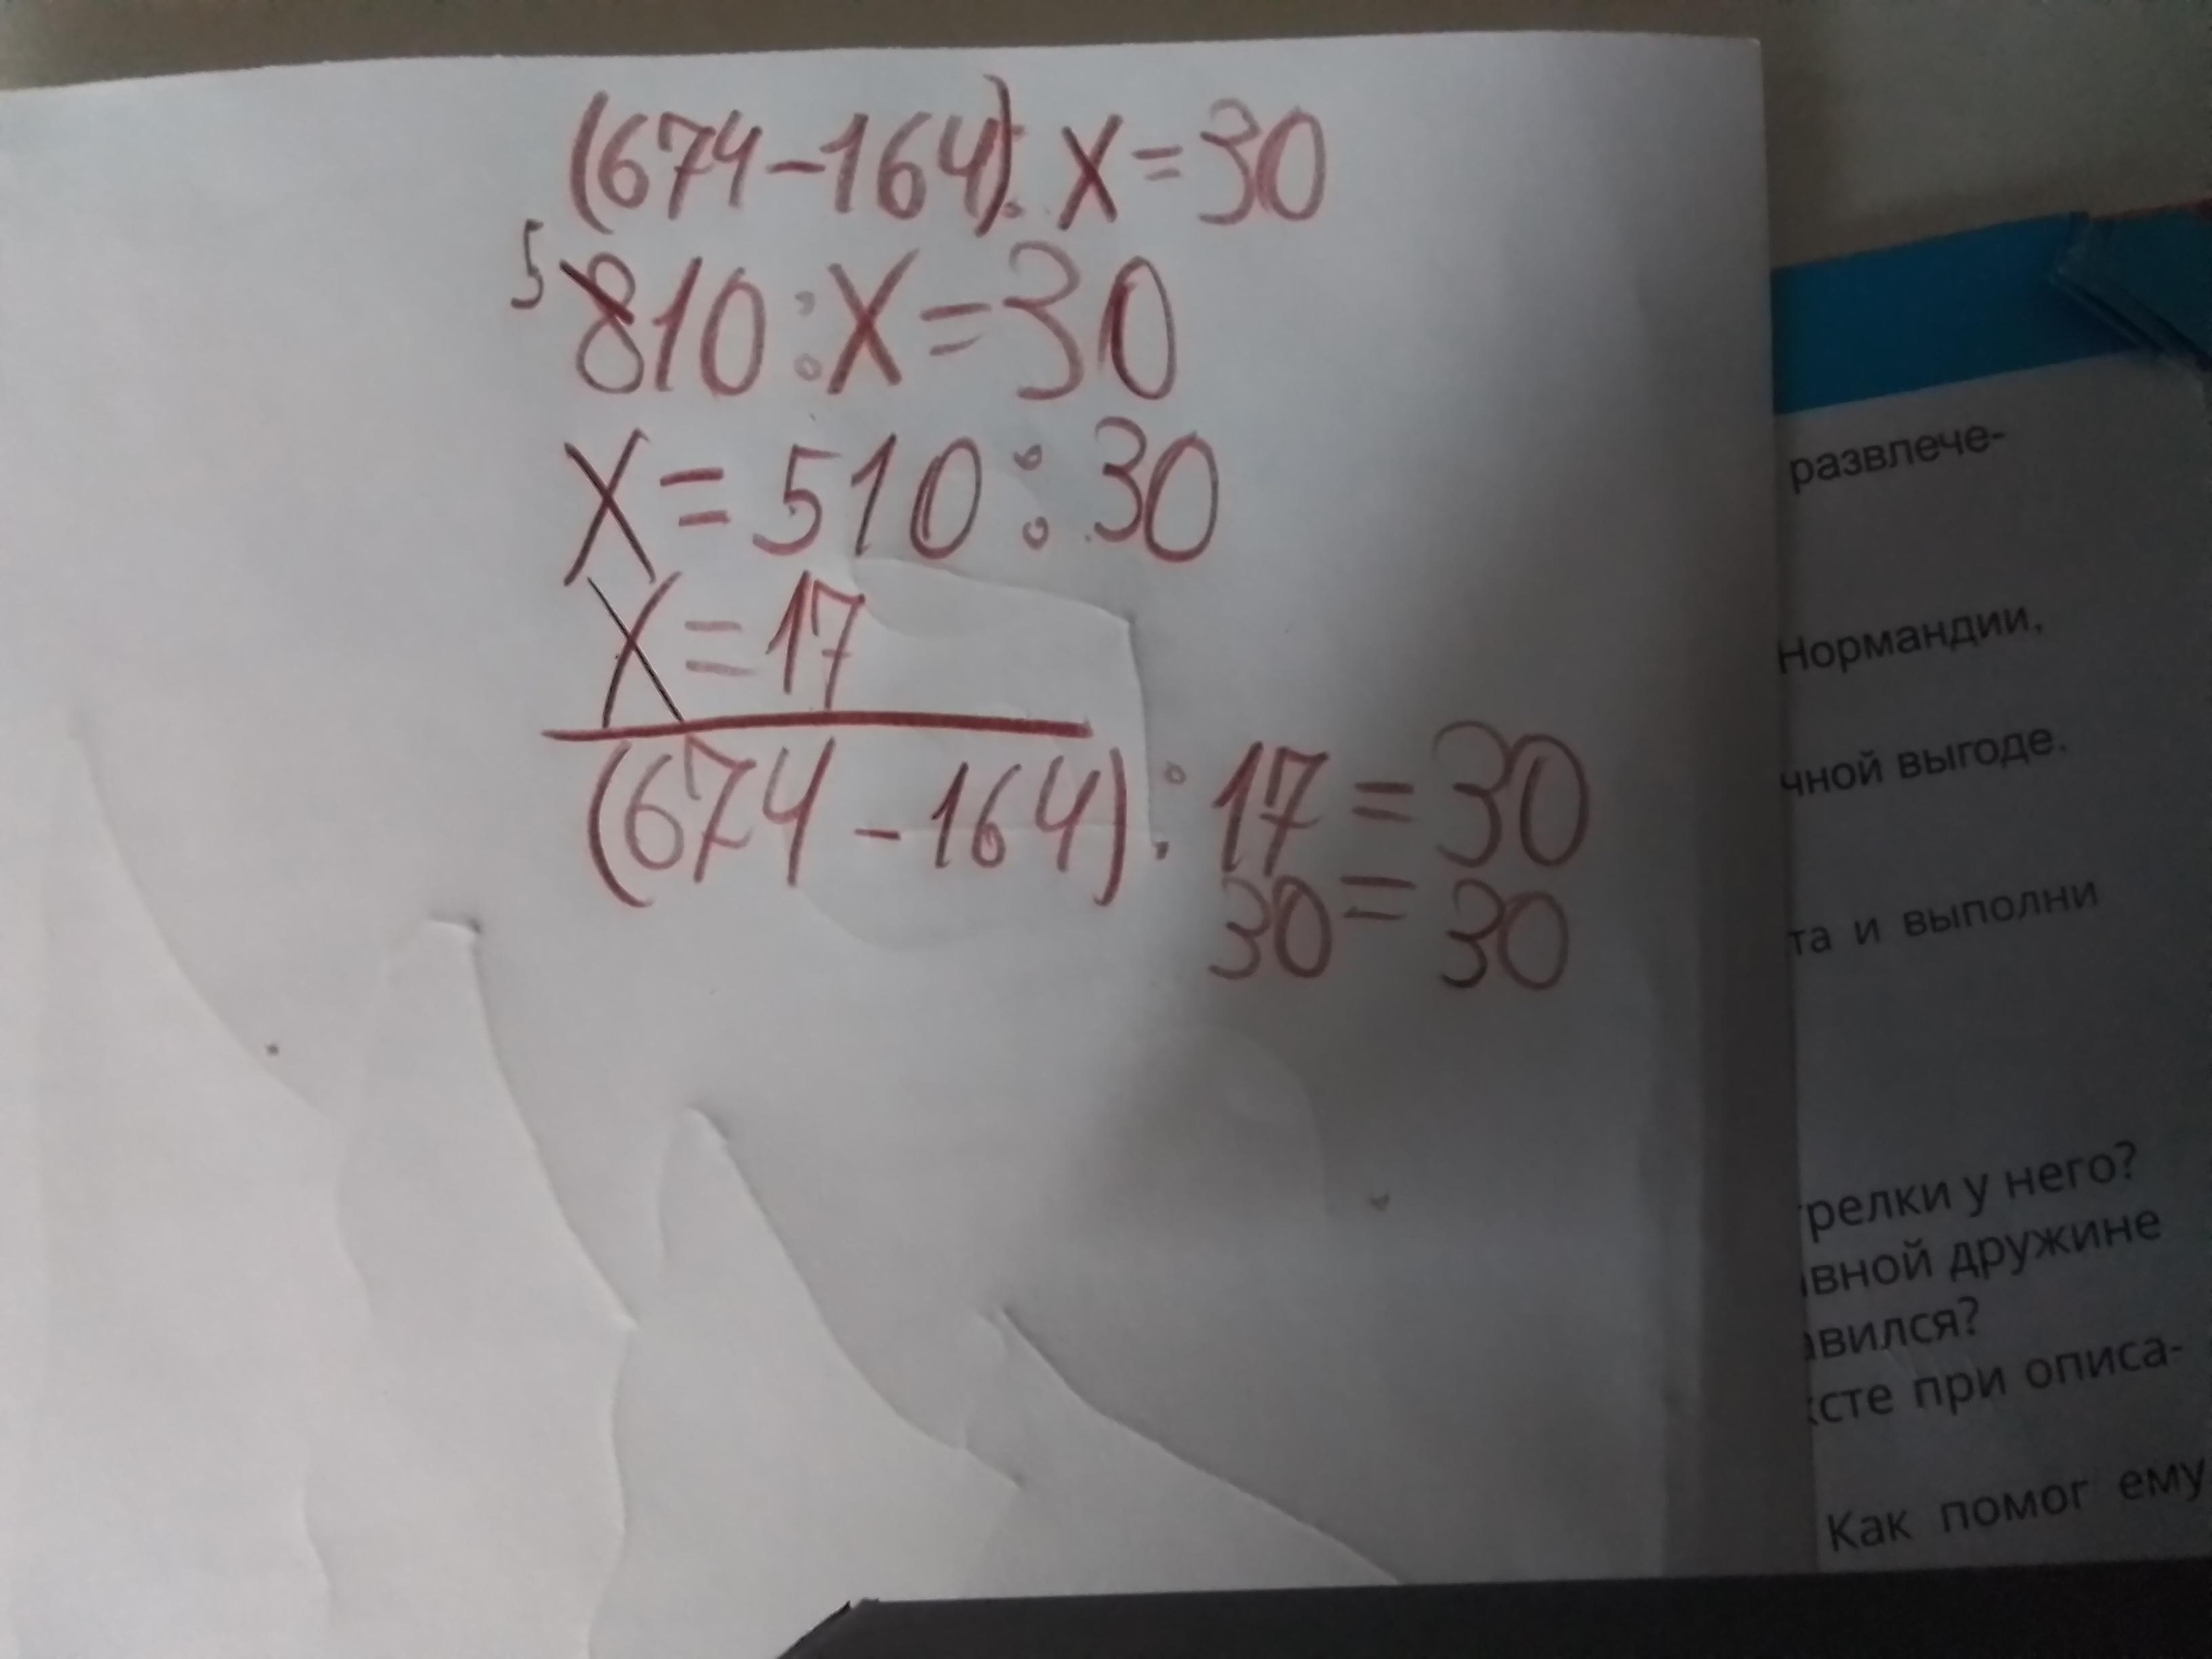 (674-164): X=30
5 810:X=30
X=510:30
X=17
(674-164):17=30
30=30
развлече-
Нормандии,
чной выгоде.
та и выполни
трелки у него?
вной дружине
авился?
ксте при описа-
Как помог ему